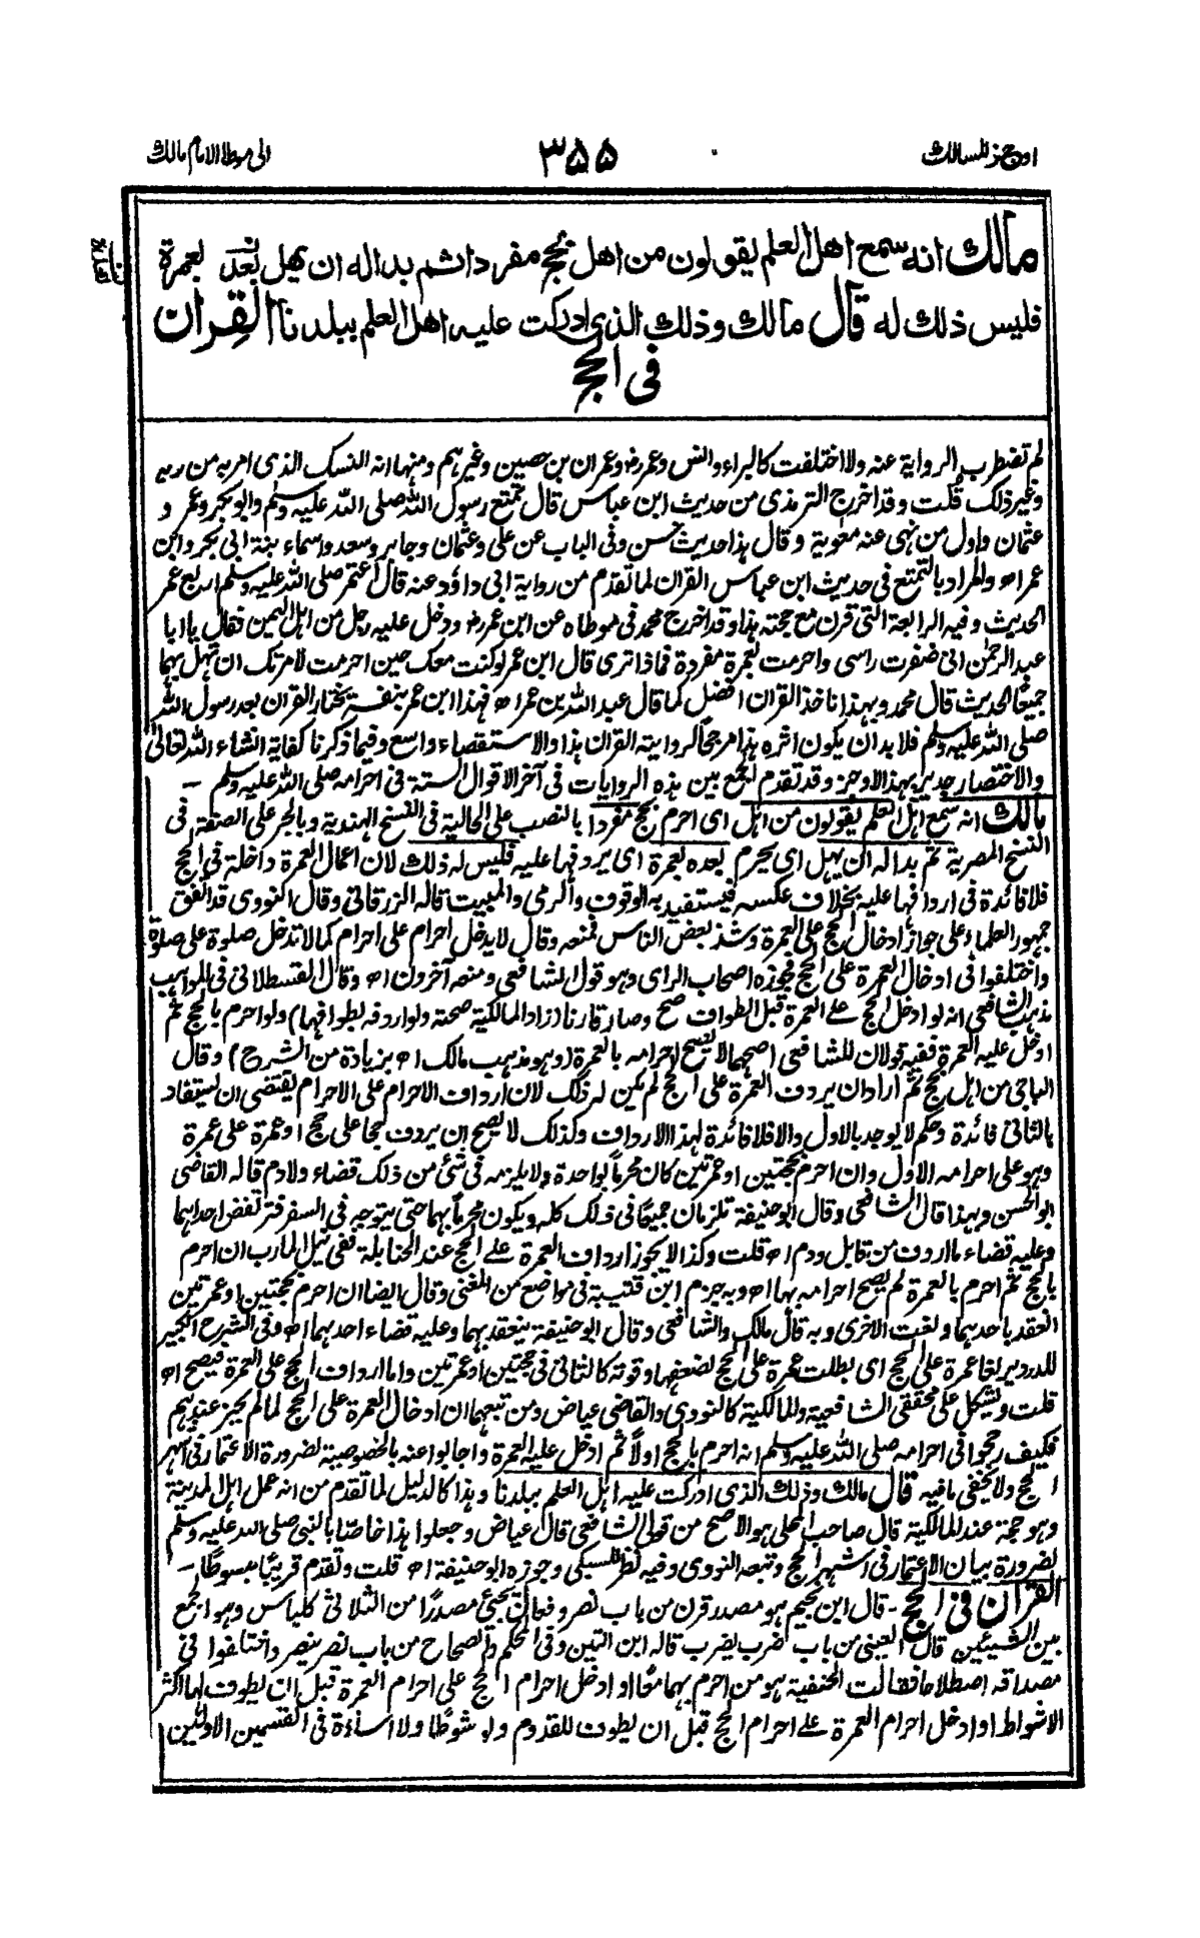 اوجز المسالك
٣٥٥
الى موطا الامام مالك
مالك انه سمع اهل العلم يقولون من اهل بحج مفردا ثم بدا له ان يهل بعد بعمرة
فليس ذلك له قال مالك وذلك الذى ادركت عليه اهل العلم ببلدنا القران
فى الحج
لم تضطرب الرواية عنه ولا اختلفت كالبراء وانس وعمر وعمران بن حصين وغيرهم ومنها انه النسك الذى امر به من ربه
وغير ذلك قلت وقد اخرج الترمذى من حديث ابن عباس قال تمتع رسول الله صلى الله عليه وسلم وابو بكر وعمر و
عثمان واول من نهى عنه معوية وقال هذا حديث حسن وفى الباب عن على وعثمان وجابر وسعد واسماء بنة ابى بكر وابن
عمر اه والمراد بالتمتع فى حديث ابن عباس القران لما تقدم من رواية ابى داؤد عنه قال اعتمر صلى الله عليه وسلم اربع عمر
الحديث وفيه الرابعة التى قرن مع حجته هذا وقد اخرج محمد فى موطاه عن ابن عمر ودخل عليه رجل من اهل اليمن فقال يا ابا
عبد الرحمن انى ضفرت راسى واحرمت بعمرة مفردة فماذا ترى قال ابن عمر لو كنت معك حين احرمت لامرتك ان تهل بهما
جميعا الحديث قال محمد وبهذا ناخذ القران افضل كما قال عبد الله بن عمر اه فهذا ابن عمر بنفسه يختار القران بعد رسول الله
صلى الله عليه وسلم فلا بد ان يكون اثره هذا مرجحا لروايته القران هذا والاستقصاء واسع وفيما ذكرنا كفاية انشاء الله تعالى
والاختصار جدير بهذا الاوجز وقد تقدم الجمع بين هذه الروايات فى آخر الاقوال الستة فى احرامه صلى الله عليه وسلم -
مالك انه سمع اهل العلم يقولون من اهل اى احرم بحج مفردا بالنصب على الحالية فى النسخ الهندية وبالجر على الصفة فى
النسخ المصرية ثم بدا له ان يهل اى يحرم بعده بعمرة اى يردفها عليه فليس له ذلك لان اعمال العمرة داخلة فى الحج
فلا فائدة فى اردافها عليه بخلاف عكسه فيستفيد به الوقوف والرمى والمبيت قاله الزرقانى وقال النووى قد اتفق
جمهور العلماء على جواز ادخال الحج على العمرة وشذ بعض الناس فمنعه وقال لا يدخل احرام على احرام كما لا تدخل صلوة على صلوة
واختلفوا فى ادخال العمرة على الحج فجوزه اصحاب الراى وهو قول الشافعى ومنعه آخرون اه وقال القسطلانى فى المواهب
مذهب الشافعى انه لو ادخل الحج على العمرة قبل الطواف صح وصار قارنا (زاد المالكية صحته ولو اردفه بطوافها) ولو احرم بالحج ثم
ادخل عليه العمرة ففيه قولان للشافعى اصحهما لا يصح احرامه بالعمرة (وهو مذهب مالك اه بزيادة من الشرح) وقال
الباجى من اهل بحج ثم اراد ان يردف العمرة على الحج لم يكن له ذلك لان ارداف الاحرام على الاحرام يقتضى ان يستفاد
بالثانى فائدة وحكم لا يوجد بالاول والا فلا فائدة لهذا الارداف وكذلك لا يصح ان يردف حجا على حج او عمرة على عمرة
وهو على احرامه الاول وان احرم بحجتين او عمرتين كان محرما بواحدة ولا يلزمه فى شئ من ذلك قضاء ولا دم قاله القاضى
ابو الحسن وبهذا قال الشافعى وقال ابو حنيفة تلزمان جميعا فى ذلك كله ويكون محرما بهما حتى يتوجه فى السفر فترتفض احداهما
وعليه قضاء ما اردف من قابل ودم اه قلت وكذا لا يجوز ارداف العمرة على الحج عند الحنابلة ففى نيل المارب ان احرم
بالحج ثم احرم بالعمرة لم يصح احرامه بها اه وبه جزم ابن قتيبة فى مواضع من المغنى وقال ايضا ان احرم بحجتين او عمرتين
انعقد باحدهما ولغت الاخرى وبه قال مالك والشافعى وقال ابو حنيفة ينعقد بهما وعليه قضاء احدهما اه وفى الشرح الكبير
للدردير لغا عمرة على الحج اى بطلت عمرة على الحج لضعفها وقوته كالثانى فى حجتين او عمرتين واما ارداف الحج على العمرة فيصح اه
قلت ويشكل على محققى الشافعية والمالكية كالنووى والقاضى عياض ومن تبعهما ان ادخال العمرة على الحج لما لم يجز عندهم
فكيف رجحوا فى احرامه صلى الله عليه وسلم انه احرم بالحج اولا ثم ادخل عليه العمرة واجابوا عنه بالخصوصية لضرورة الاعتمار فى اشهر
الحج ولا يخفى ما فيه قال مالك وذلك الذى ادركت عليه اهل العلم ببلدنا وهذا كالدليل لما تقدم من انه عمل اهل المدينة
وهو حجة عند المالكية قال صاحب المحلى هو الاصح من قولى الشافعى قال عياض وجعلوا هذا خاصا بالنبى صلى الله عليه وسلم
لضرورة بيان الاعتمار فى اشهر الحج وتبعه النووى وفيه نظر للسبكى وجوزه ابو حنيفة اه قلت وتقدم قريبا مبسوطا -
القران فى الحج - قال ابن نجيم هو مصدر قرن من باب نصر وفعال يجئ مصدرا من الثلاثى كلباس وهو الجمع
بين الشيئين قال العينى من باب ضرب يضرب قاله ابن التين وفى المحكم والصحاح من باب نصر ينصر واختلفوا فى
مصداقه اصطلاحا فقالت الحنفية هو من احرم بهما معا او ادخل احرام الحج على احرام العمرة قبل ان يطوف لها اكثر
الاشواط او ادخل احرام العمرة على احرام الحج قبل ان يطوف للقدوم ولو شوطا ولا اساءة فى القسمين الاولين